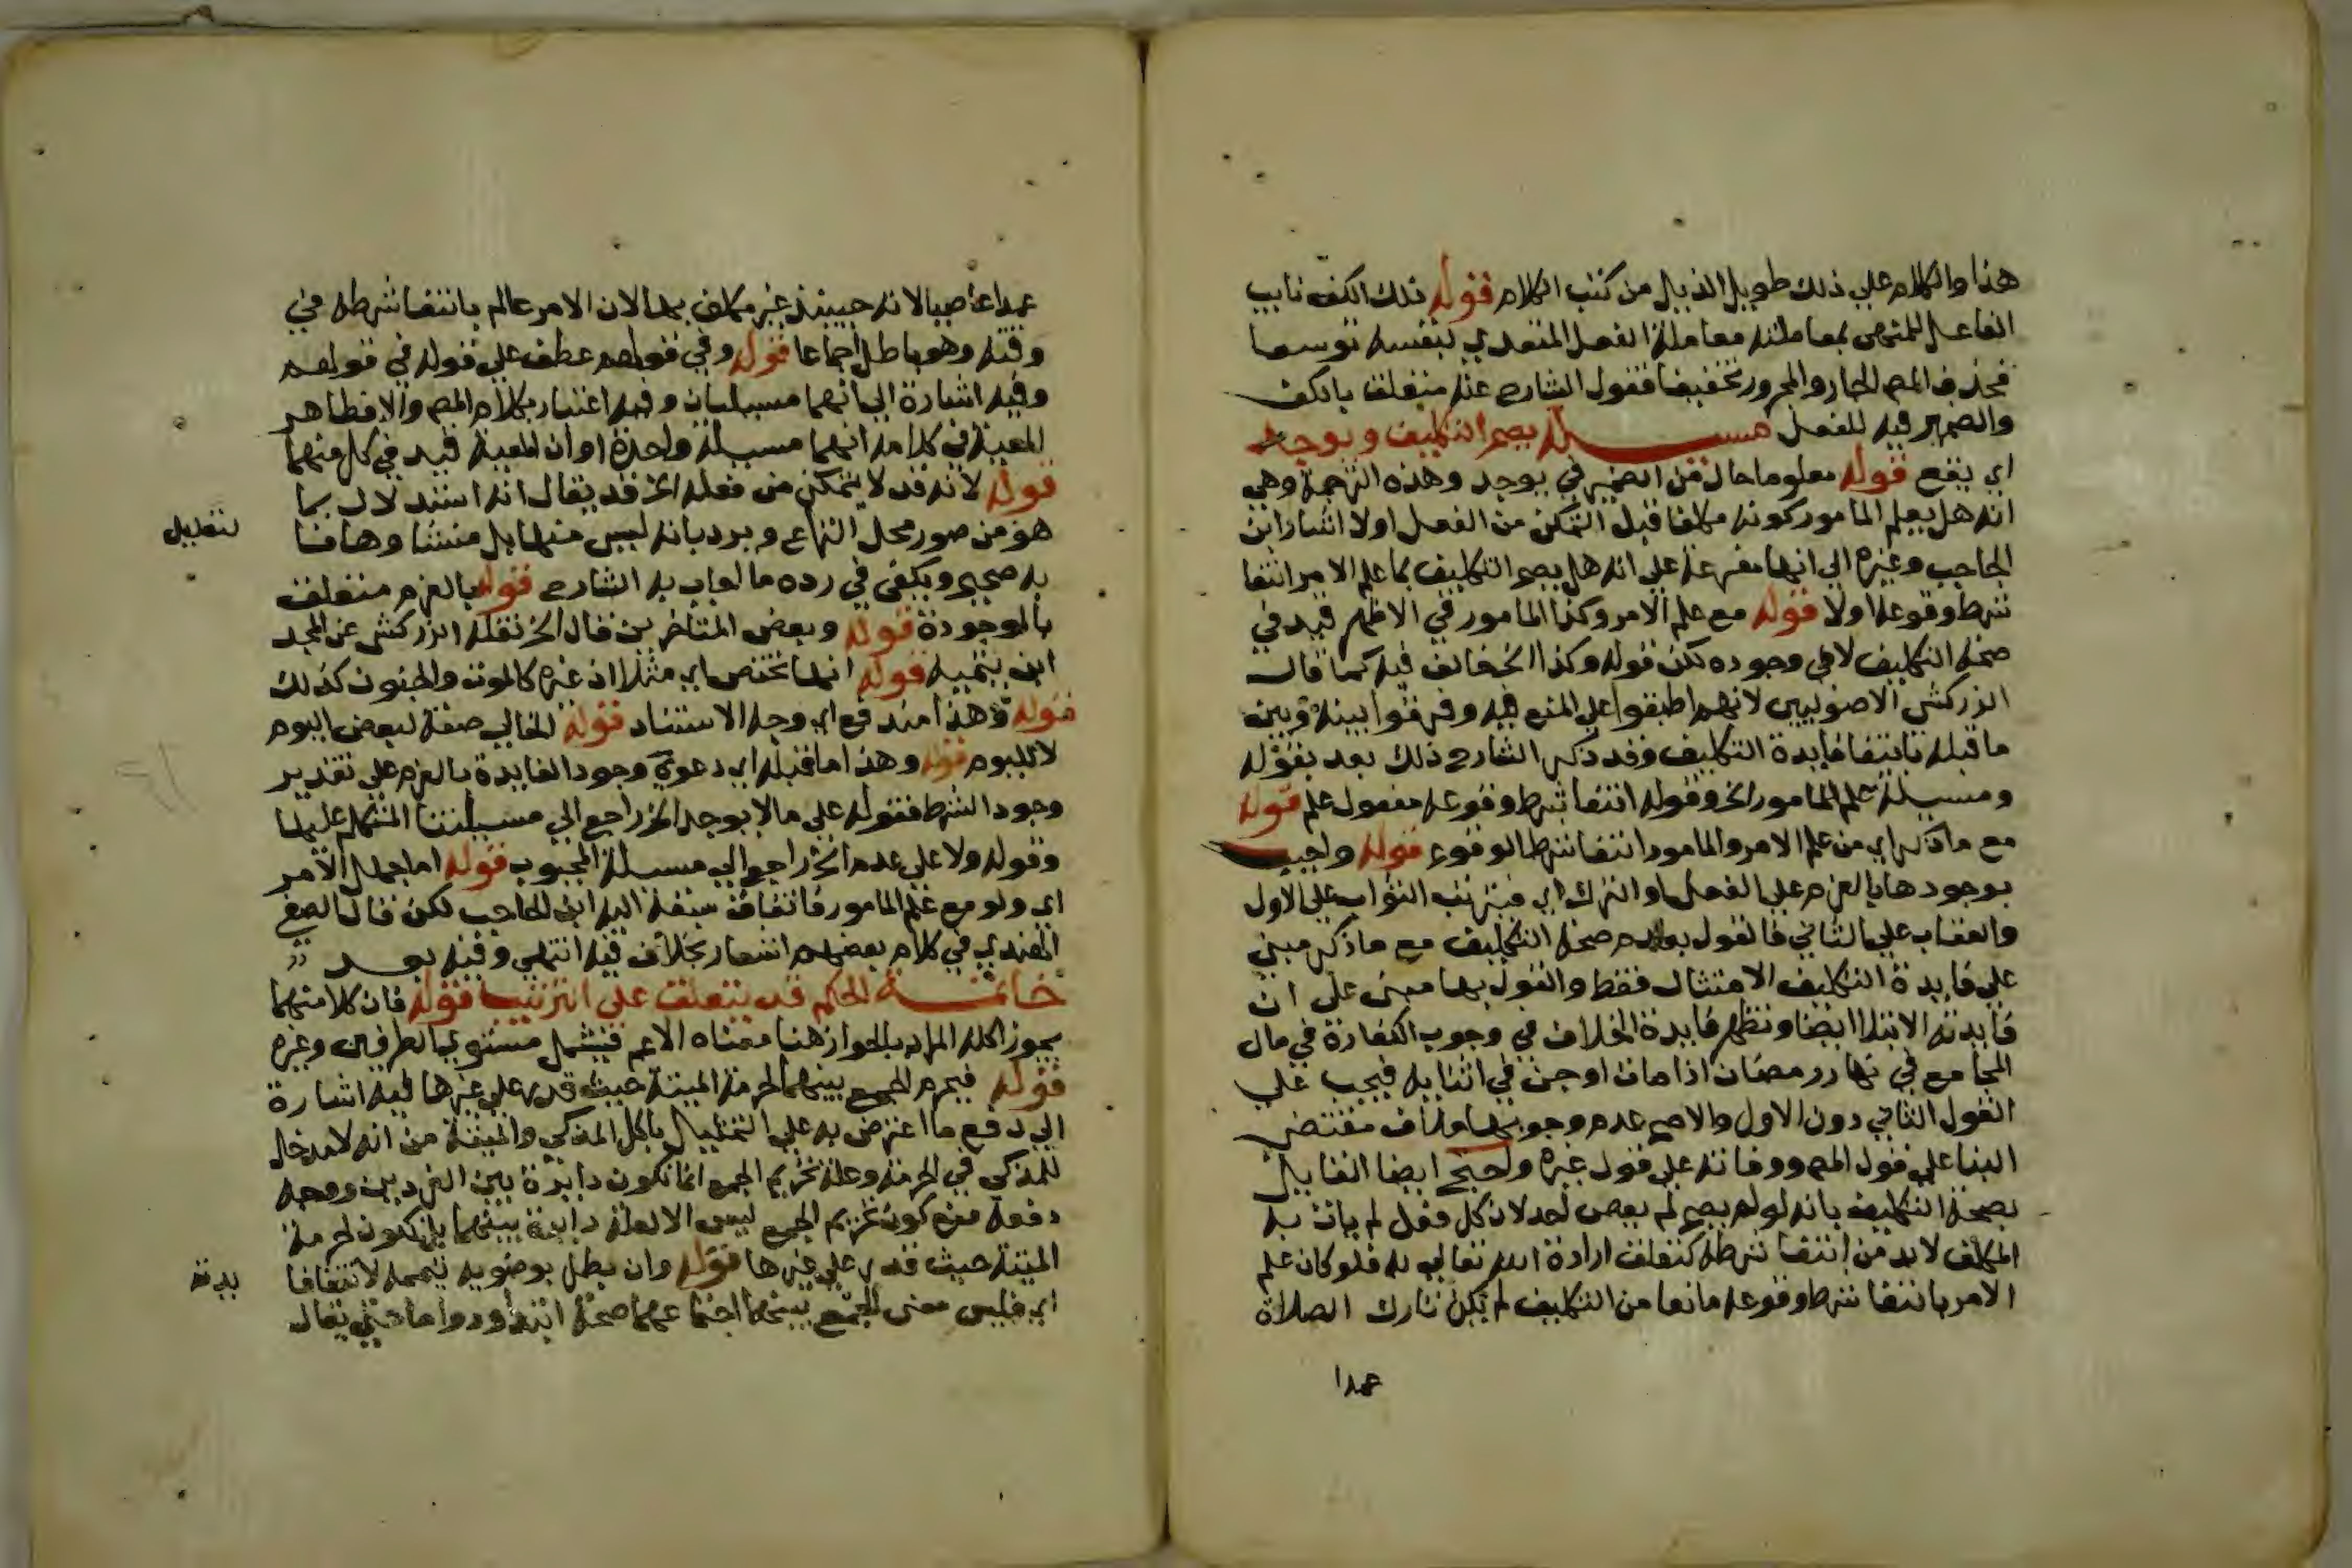 هذا والكلام علي ذلك طويل الذيل من كتب الكلام قوله ذلك الكف نايب
الفاعل للمنهي بمعاملته معاملة الفعل المتعدي بنفسه توسعا
فحذف المص الجار والمجرور تخفيفا فقول الشارح عنه متعلق بالكف
والضمير فيه للفعل مسيلة يصح التكليف ويوجد
اي يقع قوله معلوما حال من الضمير في يوجد وهذه الترجمة وهي
انه هل يعلم المامور كونه مكلفا قبل التمكن من الفعل اولا اشار ابن
الحاجب وغيره الي انها مفرعة علي انه هل يصح التكليف بما علم الامر انتفا
شرط وقوعه اولا قوله مع علم الامر وكذا المامور في الاظهر قيد في
صحة التكليف لا في وجوده لكن قوله وكذا الخ خالف فيه كما قال
الزركشي الاصوليين لانهم اطبقوا علي المنع فيه وفرقوا بينه وبين
ما قبله بانتفا فايدة التكليف وقد ذكر الشارح ذلك بعد بقوله
ومسيلة علم المامور الخ وقوله انتفا شرط وقوعه مفعول علم قوله
مع ما ذكر اي من علم الامر والمامور انتفا شرط الوقوع قوله واجيب
بوجودها بالعزم علي الفعل او الترك اي فيترتب الثواب علي الاول
والعقاب علي الثاني فالقول بعدم صحة التكليف مع ما ذكر مبني
علي فايدة التكليف الامتثال فقط والقول بها مبني علي ان
فايدته الابتلا ايضا وتظهر فايدة الخلاف في وجوب الكفارة في مال
المجامع في نهار رمضان اذا مات او جن في اثنايه فيجب علي
القول الثاني دون الاول والاصح عدم وجوبها خلاف مقتضي
البنا علي قول المص ووفاته علي قول غيره واحتج ايضا القايل
بصحة التكليف بانه لو لم يصح لم يعص احد لان كل فعل لم يات به
المكلف لابد من انتفا شرطه كتعلق ارادة الله تعالي به فلو كان علم
الامر بانتفا شرط وقوعه مانعا من التكليف لم يكن تارك الصلاة
عمدا
عمدا عاصيا لانه حينيذ غير مكلف بها لان الامر عالم بانتفا شرطه في
وقته وهو باطل اجماعا قوله وفي قولهم عطف علي قوله في قولهم
وفيه اشارة الي انهما مسيلتان وفيه اعتبار بكلام المص والا فظاهر
المعية في كلامه انهما مسيلة واحدة او ان المعية قيد في كل منهما
قوله لانه قد لا يتمكن من فعله الخ قد يقال انه استدلال بما
هو من صور محل النزاع ويرد بانه ليس منها بل منشا وها هنا
لتعليل
به صحيح ويكفي في رده ما اجاب به الشارح قوله بالعزم متعلق
بالموجودة قوله وبعض المتاخرين قال الخ نقله الزركشي عن المجد
ابن تيمية قوله انها تختص اي مثلا اذ غيره كالموت والجنون كذلك
قوله وهذا مندفع اي وجه الاستشاد قوله الخالي صفة لبعض اليوم
لا لليوم قوله وهذا ما قبله اي دعوي وجود الفايدة بالعزم علي تقدير
وجود الشرط فقوله علي ما لا يوجد الخ راجع الي مسيلتنا المتكلم عليها
وقوله ولا علي عدم الخ راجع الي مسيلة المجبوب قوله اما جهل الامر
اي ولو مع علم المامور فاتفاق سبقه اليه ابن الحاجب لكن قال الصفي
الهندي في كلام بعضهم اشعار بخلاف فيه انتهي وفيه بعد
خاتمة الحكم قد يتعلق علي الترتيب قوله فان كلا منهما
يجوز اكله المراد بالجواز هنا معناه الاعم فيشمل مستوي الطرفين وغيره
قوله فيحرم الجمع بينهما لحرمة الميتة حيث قدر علي غيرها فيه اشارة
الي دفع ما اعترض به علي التمثيل باكل المذكي والميتة من انه لا مدخل
للمذكي في الحرمة وعلة تحريم الجمع انما تكون دايرة بين الفردين ووجه
دفعه منع كون تحريم الجمع ليس الا لعلة دايرة بينهما بل يكون لحرمة
الميتة حيث قدر علي غيرها قوله وان بطل بوضويه تيممه لانتفا فا
يدته
اي فليس معني الجمع بينهما اجتماعهما صحة ابتدا ودواما حتي يقال